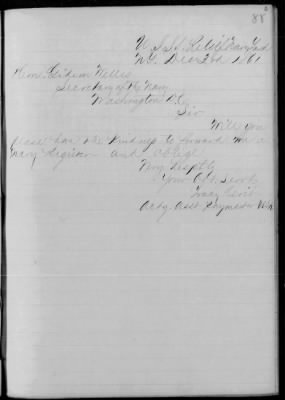 88
U.S.S. Navy Yard
N.Y. Dec 3rd 1861
Hon. Gideon Welles
Secretary of the Navy
Washington D.C.
Sir
Will you
please have the kindness to forward me a
Navy Register and oblige
Very Respctly
Your Obt. Servt
Actg. Asst. Paymaster U.S.N.